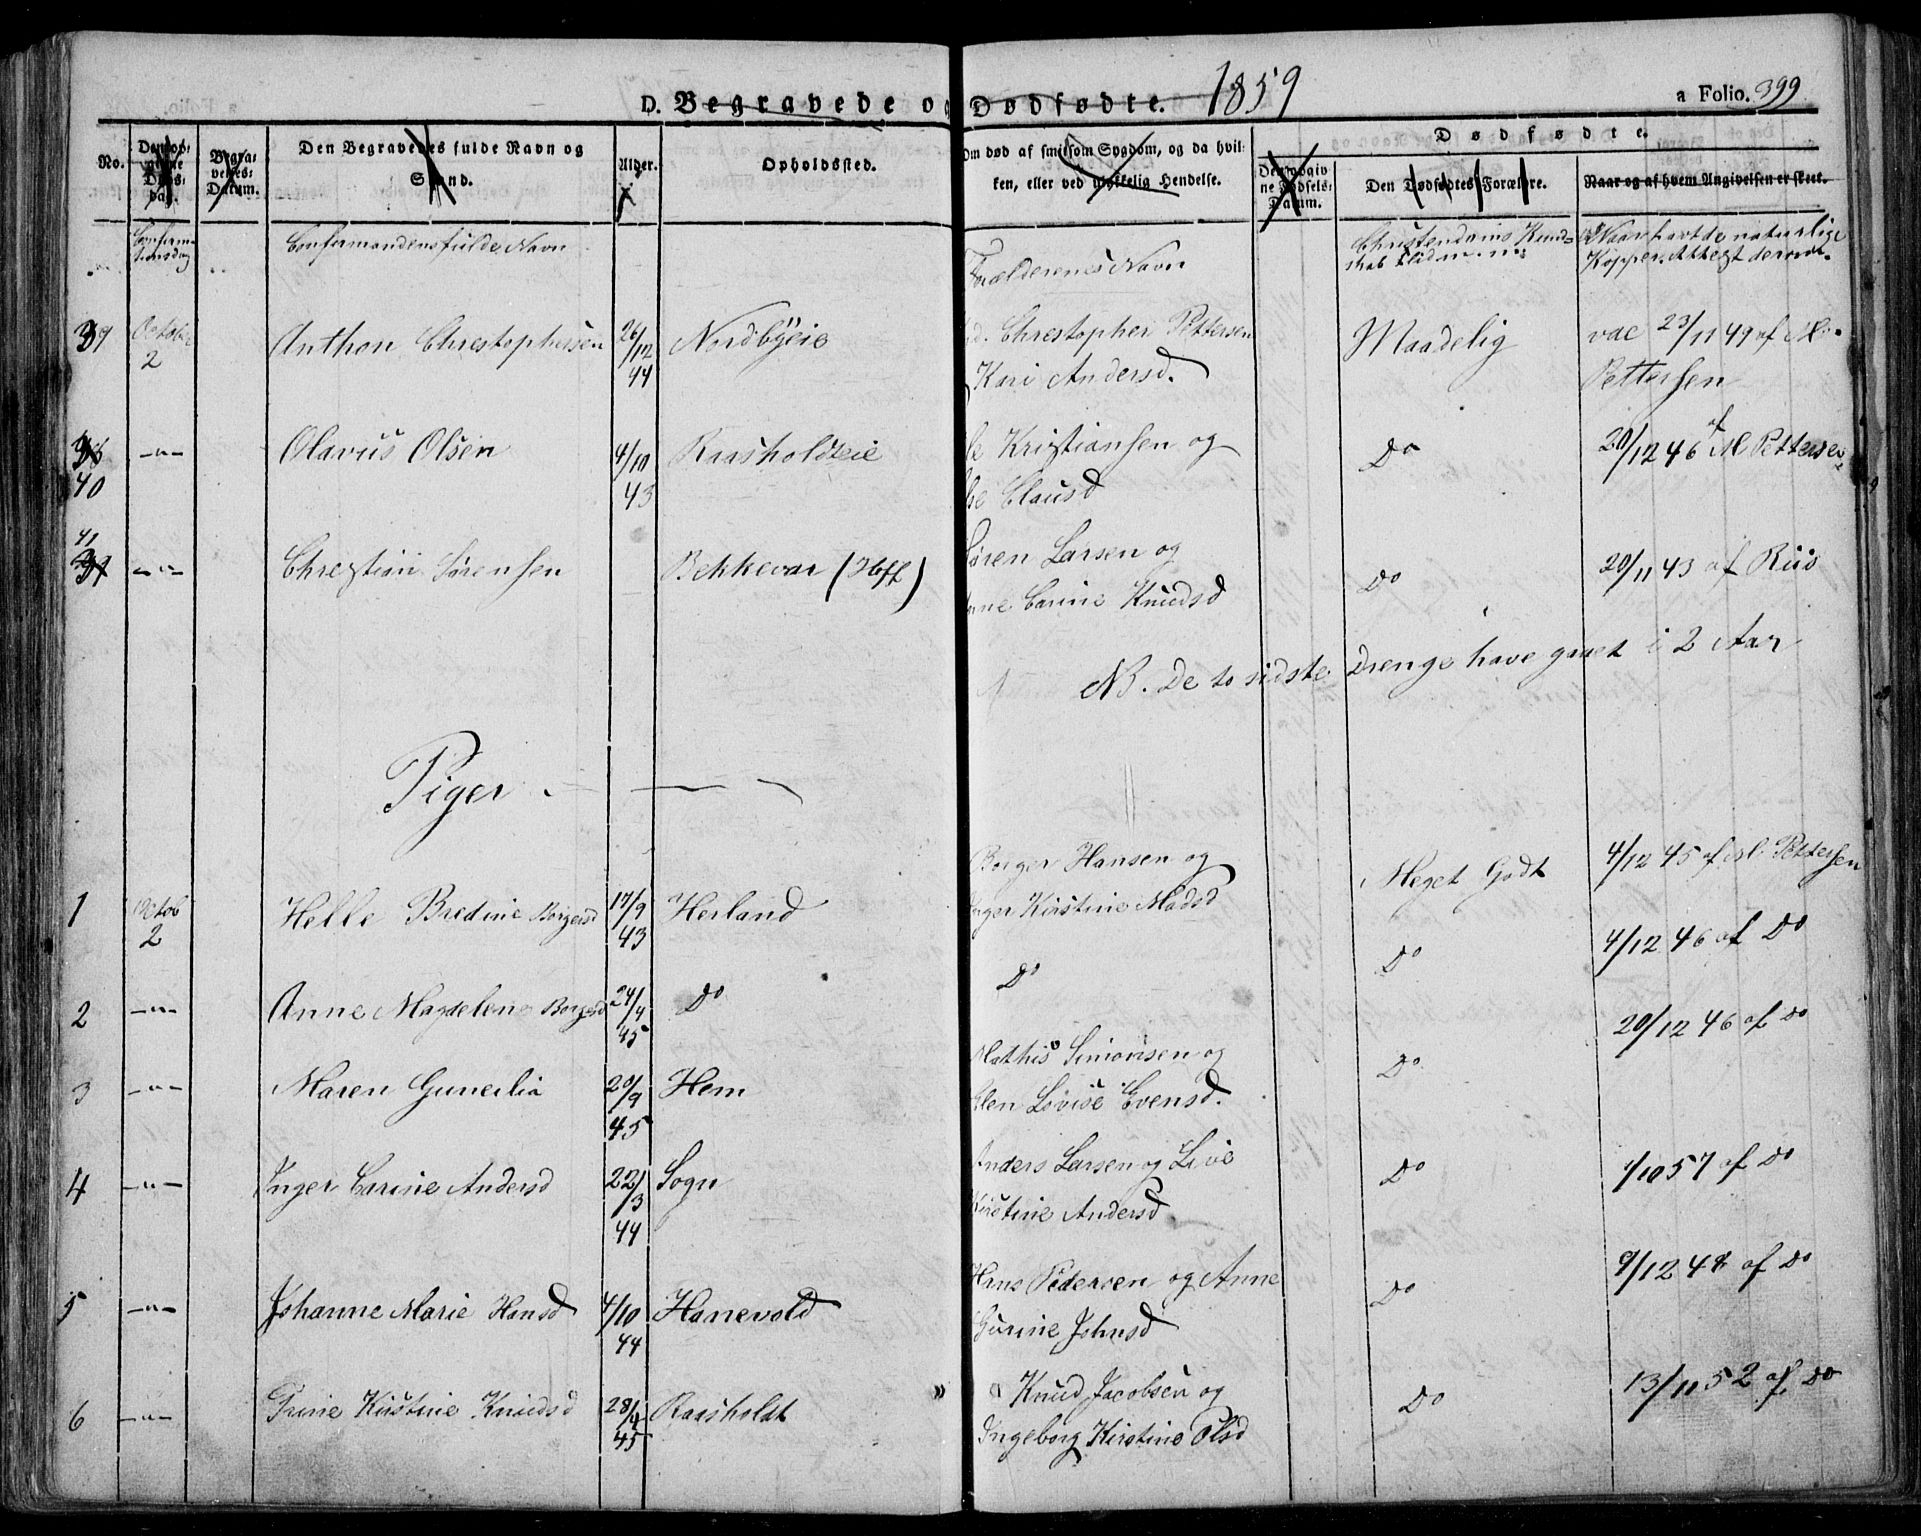 D. Begravede og Dødfødte. 1859
a Folio. 399
No.
Den op-
givne
Døds-
dag.
Begra-
velses-
Datum.
Den Begravedes fulde Navn og
Stand.
Alder.
Opholdssted.
Om død af smitsom Sygdom, og da hvil-
ken, eller ved ulykkelig Hendelse.
Dødfødte.
Den opgivne
Fødsels-
Datum.
Den Dødfødtes Forældre.
Naar og af hvem Angivelsen er skeet.
Conferm-
tionsdag
Confermandens fulde Navn
Forælderenes Navn
Christendoms Kund-
skab
Naar havt de naturlige
Kopper. Attest derom.
39 October 2 Anthon Chrestophersen 26/12 44 Nordbyeie Chrestopher Pettersen
Kari Andersd. Maadelig vac 23/11 49 af M.
Pettersen
40 -"- Olavus Olsen 4/10 43 Raasholdteie Kristiansen og
Clausd Do 20/12 46 af M. Pettersen
41 -"- Chrestian Sørensen Bekkevar (Hoff) Søren Larsen og
Carine Knudsd Do 20/11 43 af Riis
NB. De to sidste Drenge have gaaet i 2 Aar
Piger
1 Octob 2 Helle Bredine Borgersd 17/9 43 Herland Borger Hansen og
Inger Kirstine Madsd Meget Godt 4/12 45 af M. Pettersen
2 -"- Anne Magdelene Borgersd 24/4 45 Do Do Do 4/12 46 af Do
3 -"- Maren Gunelia 20/9 45 Hem Mathis Simonsen og
Elen Lovise Evensd. Do 20/12 46 af Do
4 -"- Inger Carine Andersd 22/3 44 Sogn Anders Larsen og Live
Kirstine Andersd Do 1/10 57 af Do
5 -"- Johanne Marie Hansd 4/10 44 Hanevold Hans Pedersen og Anne
Gurine Johnsd Do 9/12 48 af Do
6 -"- Trine Kirstine Knudsd 28/4 45 Raasholdt Knud Jacobsen og
Ingeborg Kirstine Olsd Do 13/11 52 af Do